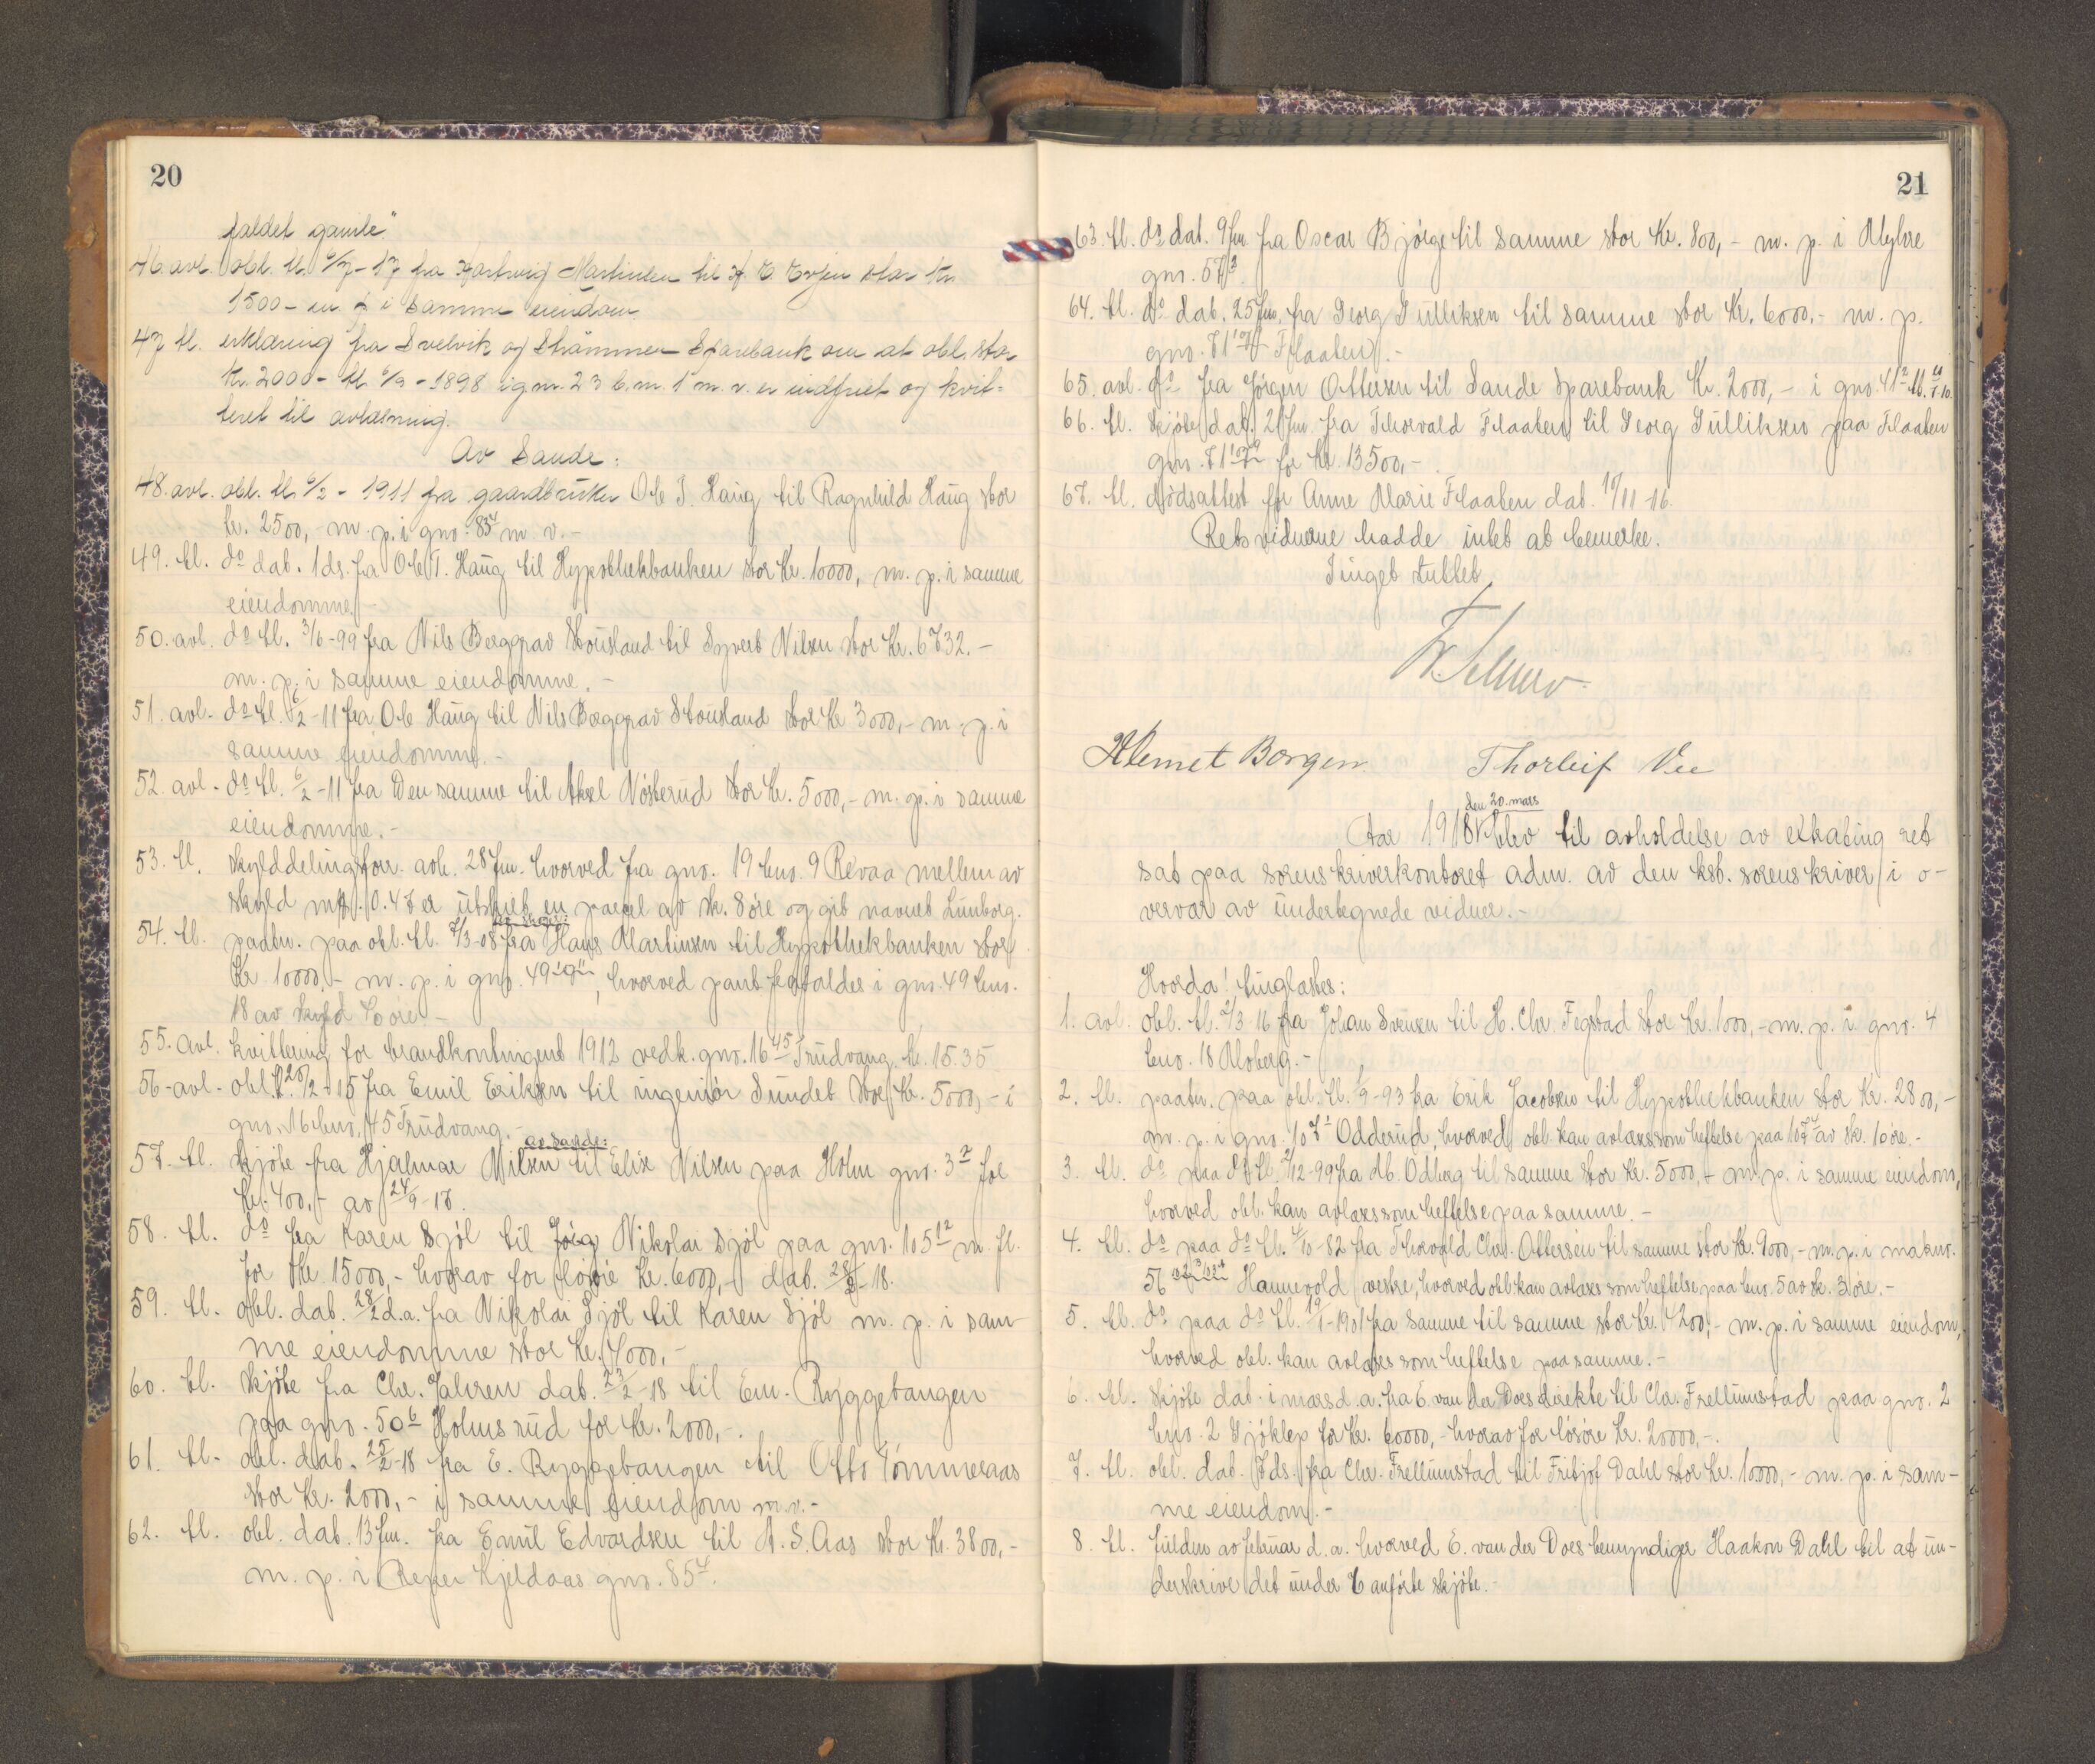 20
faldet gamle"
46. avl. obl. tl. 6/7-17 fra Hartvig Martinsen til H. E. Evjen stor kr.
1500- m p i samme eiendom
47 tl. erklæring fra Svelvik og Strømmen Sparebank om at obl. stor
kr. 2000- tl. 6/9-1898 i g.nr. 23 b.nr. 1 m. v. er indfriet og kvit-
teret til avlæsning.
Av Sande:
48. avl. obl. tl. 6/2-1911 fra gaardbruker Ole T. Haug til Ragnhild Haug stor
kr. 2500,- m. p. i gno. 85⁴ m. v.-
49. tl. do dat. 1 ds. fra Ole T. Haug til Hypothekbanken stor Kr. 10000, m. p. i samme
eiendomme.-
50. avl. do tl. 3/6-99 fra Nils Berggrav Stousland til Syvert Nilsen stor Kr. 6732.-
m. p. i samme eiendomme.-
51. avl. do tl. 6/2-11 fra Ole Haug til Nils Berggrav Stousland stor Kr 3000,- m. p. i
samme eiendomme.-
52. avl. do tl. 6/2-11 fra Den samme til Aksel Nøsterud stor Kr. 5000,- m. p. i samme
eiendomme.-
53. tl. skylddelingsforr. avh. 28 fm. hvorved fra gno. 19 bno. 9 Revaa mellem av
skyld mk. 0.47 er utskilt en parcel av sk. 8 øre og git navnet Lunborg.
Av Skoger:
54. tl. paatn. paa obl. tl. 7/3-08 fra Hans Martinsen til Hypothekbanken stor
Kr 10000,- m. p. i gno. 49, hvorved pant frafaldes i gno. 49 bno.
18 av skyld 6 øre.-
55. avl. kvittering for brandkontingent 1912 vedk. gno. 16 45 Trudvang. kr. 15.35
56. avl. obl. tl. 26/2-15 fra Emil Eriksen til ingeniør Sundet stor Kr. 5000,- i
gno. 16 bno. 45 Trudvang.-
av Sande:
57. tl. skjøte fra Hjalmar Nilsen til Elise Nilsen paa Holm gno. 3² for
kr. 400,- av 24/9-17.
58. tl. do fra Karen Sjöl til Nikolai Sjöl paa gno. 105¹² m. fl.
for Kr. 15000,- hvorav for løsøre Kr. 6000,- dat. 28/2-18.
59. tl. obl. dat. 28/2 d.a. fra Nikolai Sjöl til Karen Sjöl m. p. i sam-
me eiendomme stor Kr. 4000,-
60. tl. skjøte fra Chr. Jahren dat. 23/2-18 til Em. Ryggetangen
paa gno. 50⁶ Holmsrud for Kr. 2000,-.
61. tl. obl. dat. 25/2-18 fra E. Ryggetangen til Otto Tömmeraas
stor Kr. 2000,- i samme eiendom m. v.-
62. tl. obl. dat. 13 fm. fra Emil Edvardsen til A. S. Aas stor Kr. 3800,-
m. p. i Kjeldaas gno. 85⁴.
21
63. tl. do dat. 9 fm. fra Oscar Bjørge til samme stor Kr. 800,- m. p. i
gno. 57³
64. tl. do dat. 25 fm. fra Georg Gulliksen til samme stor Kr. 6000.- m. p.
gno. 71 Flaaten.-
65. avl. do fra Jørgen Ottersen til Sande Sparebank Kr. 2000,- i gno. 41² tl.
66. tl. skjøte dat. 21 fm. fra Thorvald Flaaten til Georg Gulliksen paa Flaaten
gno. 71 for Kr. 13500,-
67. tl. dødsattest for Anne Marie Flaaten dat. 10/11-16.
Retsvidnerne hadde intet at bemerke.
Tinget sluttet
Klemet Borgen Thorleif Vee
den 20. mars
Aar 1918 blev til avholdelse av extrating ret
sat paa sorenskriverkontoret adm. av den kst. sorenskriver i o-
vervær av undertegnede vidner.-
Hvorda! tinglæstes:
1. avl. obl. tl. 2/3 16 fra Johan Svensen til H. Chr. Fegstad stor Kr. 1000,- m. p. i gno. 4
bno. 18 Moberg.-
2. tl. paatn. paa obl. tl. 1/9-93 fra Erik Jacobsen til Hypothekbanken stor Kr. 2800,-
m. p. i gno. 107¹ Odderud, hvorved obl. kan avlæses som heftelse paa 107 av sk. 10 øre.-
3. tl. do paa do tl. 2/12-99 fra Ab. Odberg til samme stor Kr. 5000,- m. p. i samme eiendom,
hvorved obl. kan avlæses som heftelse paa samme.-
4. tl. do paa do tl. 4/10-82 fra Thorvald Chr. Ottersen til samme stor Kr. 9000,- m. p. i matnr.
56 Hannevold vestre, hvorved obl. kan avlæses som heftelse paa bno. 5 av sk. 3 øre.-
5. tl. do paa do tl. 19/1-1901 fra samme til samme stor Kr. 4200,- m. p. i samme eiendom,
hvorved obl. kan avlæses som heftelse paa samme.-
6. tl. skjøte dat. i mars d. a. fra E. van der Does direkte til Chr. Frellumstad paa gno. 2
bno. 2 Gjøklep for Kr. 60000,- hvorav for løsøre Kr. 20000,-.
7. tl. obl. dat. 7 ds. fra Chr. Frellumstad til Fritjof Dahl stor Kr. 10000,- m. p. i sam-
me eiendom.-
8. tl. fuldm. av februar d. a. hvorved E. van der Does bemyndiger Haakon Dahl til at un-
derskrive det under 6 anførte skjøte.-